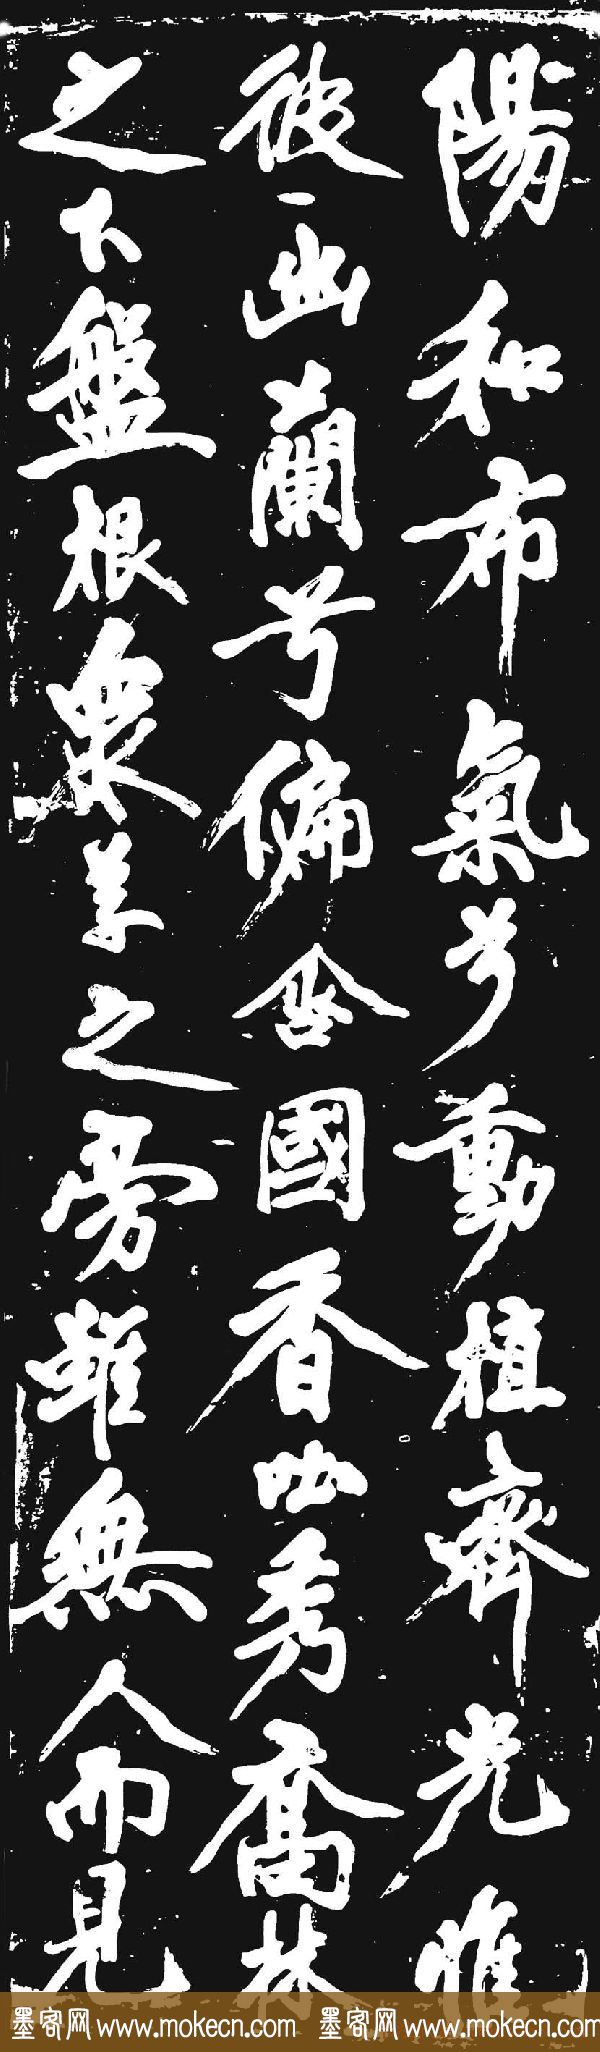 陽和布氣兮動植齊光惟
彼幽蘭兮偏含國香吐秀喬林
之下盤根衆草之旁雖無人而見
墨客网 www.mokecn.com 墨客网 www.mokecn.com